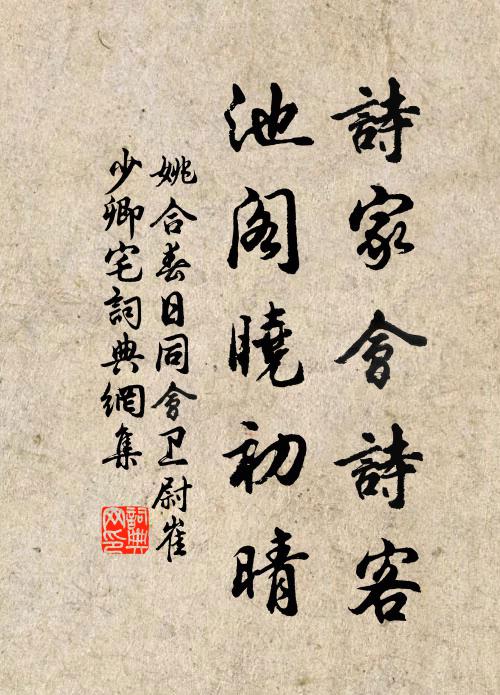 詩家會詩客
池阁曉初晴
姚合春日同會卫尉崔
少卿宅詞典網集
詞典
网印